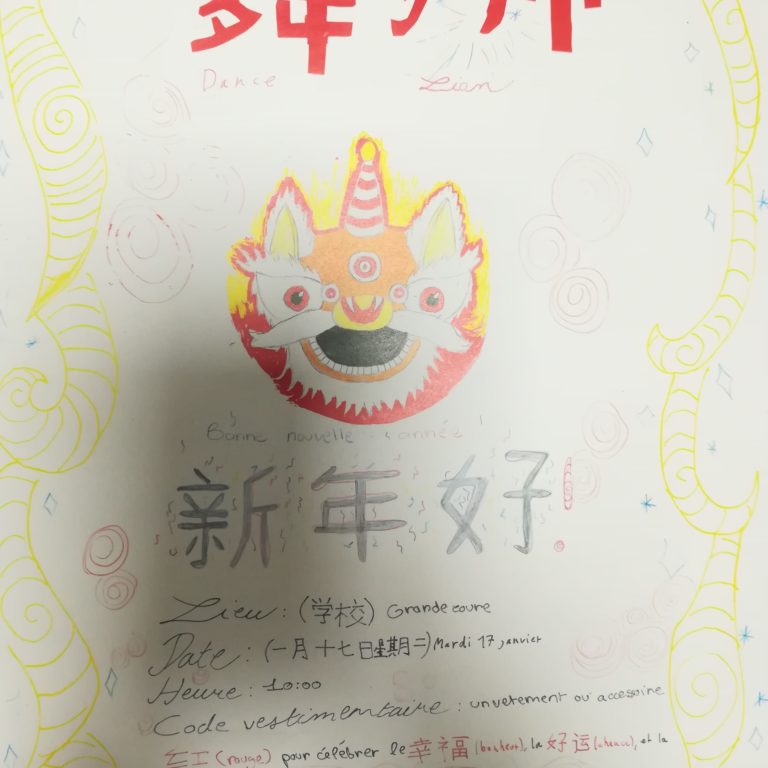 Dance Lian
Bonne nouvelle année
新年好!
Lieu : (学校) Grande coure
Date : (一月十七日星期二) Mardi 17 janvier
Heure : 10:00
Code vestimentaire : un vetement ou accessoire
红 (rouge) pour célébrer le 幸福 (bonheur), la 好运 (chance), et la